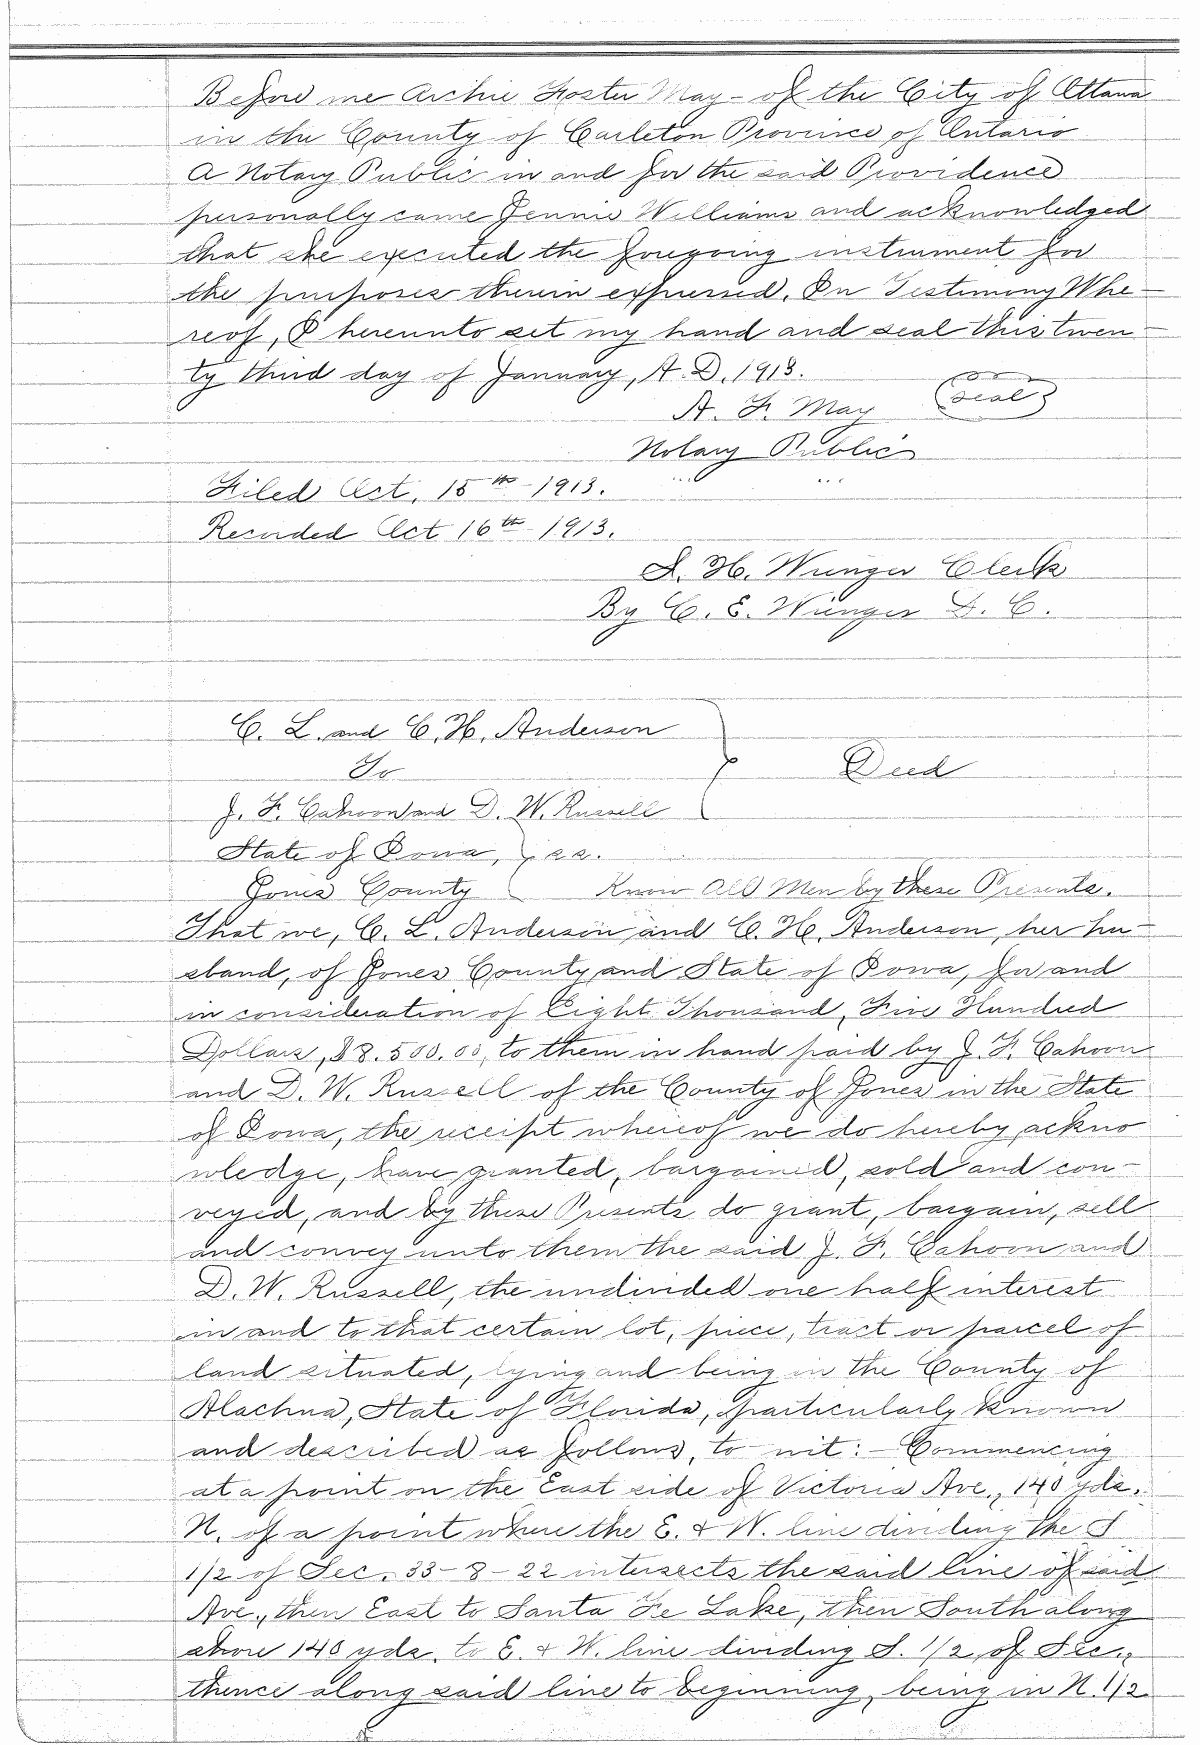 Before me Archie Foster May - of the City of Ottawa
in the County of Carleton Province of Ontario
A Notary Public in and for the said Providence
personally came Jennie Williams and acknowledged
that she executed the foregoing instrument for
the purposes therein expressed. In Testimony Whe-
reof, I hereunto set my hand and seal this twen-
ty third day of January, A.D. 1913.
A. F. May (seal)
Notary Public
Filed Oct. 15th 1913. " "
Recorded Oct 16th 1913.
S. H. Wienger Clerk
By C. E. Wienger D. C.
C. L. and C. H. Anderson
To } Deed
J. F. Cahoon and D. W. Russell
State of Iowa, } s.s.
Jones County Know All Men by these Presents.
That we, C. L. Anderson and C. H. Anderson, her hu-
sband, of Jones County and State of Iowa, for and
in consideration of Eight Thousand, Five Hundred
Dollars, $8.500.00, to them in hand paid by J. F. Cahoon
and D. W. Russell of the County of Jones in the State
of Iowa, the receipt whereof we do hereby ackno
wledge, have granted, bargained, sold and con-
veyed, and by these Presents do grant, bargain, sell
and convey unto them the said J. F. Cahoon and
D. W. Russell, the undivided one half interest
in and to that certain lot, piece, tract or parcel of
land situated, lying and being in the County of
Alachua, State of Florida, particularly known
and described as follows, to wit: - Commencing
at a point on the East side of Victoria Ave., 140 yds.
N. of a point where the E. & W. line dividing the S
1/2 of Sec. 33 - 8 - 22 intersects the said line of said
Ave., then East to Santa Fe Lake, then South along
shore 140 yds. to E. & W. line dividing S. 1/2 of Sec.,
thence along said line to beginning, being in N. 1/2